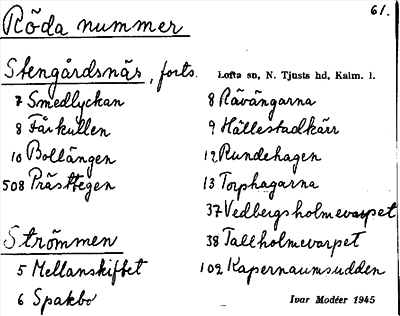 61.
Röda nummer
Stengårdsnäs, forts.
Lofta sn, N. Tjusts hd, Kalm. l.
7 Smedlyckan
8 Fårkullen
10 Bollängen
508 Prästtegen
Strömmen
5 Mellanskiftet
6 Spakbo
8 Rävängarna
9 Hällestadkärr
12 Rundehagen
13 Torphagarna
37 Vedbergsholmevarpet
38 Tallholmevarpet
102 Kapernaumsudden
Ivar Modéer 1945